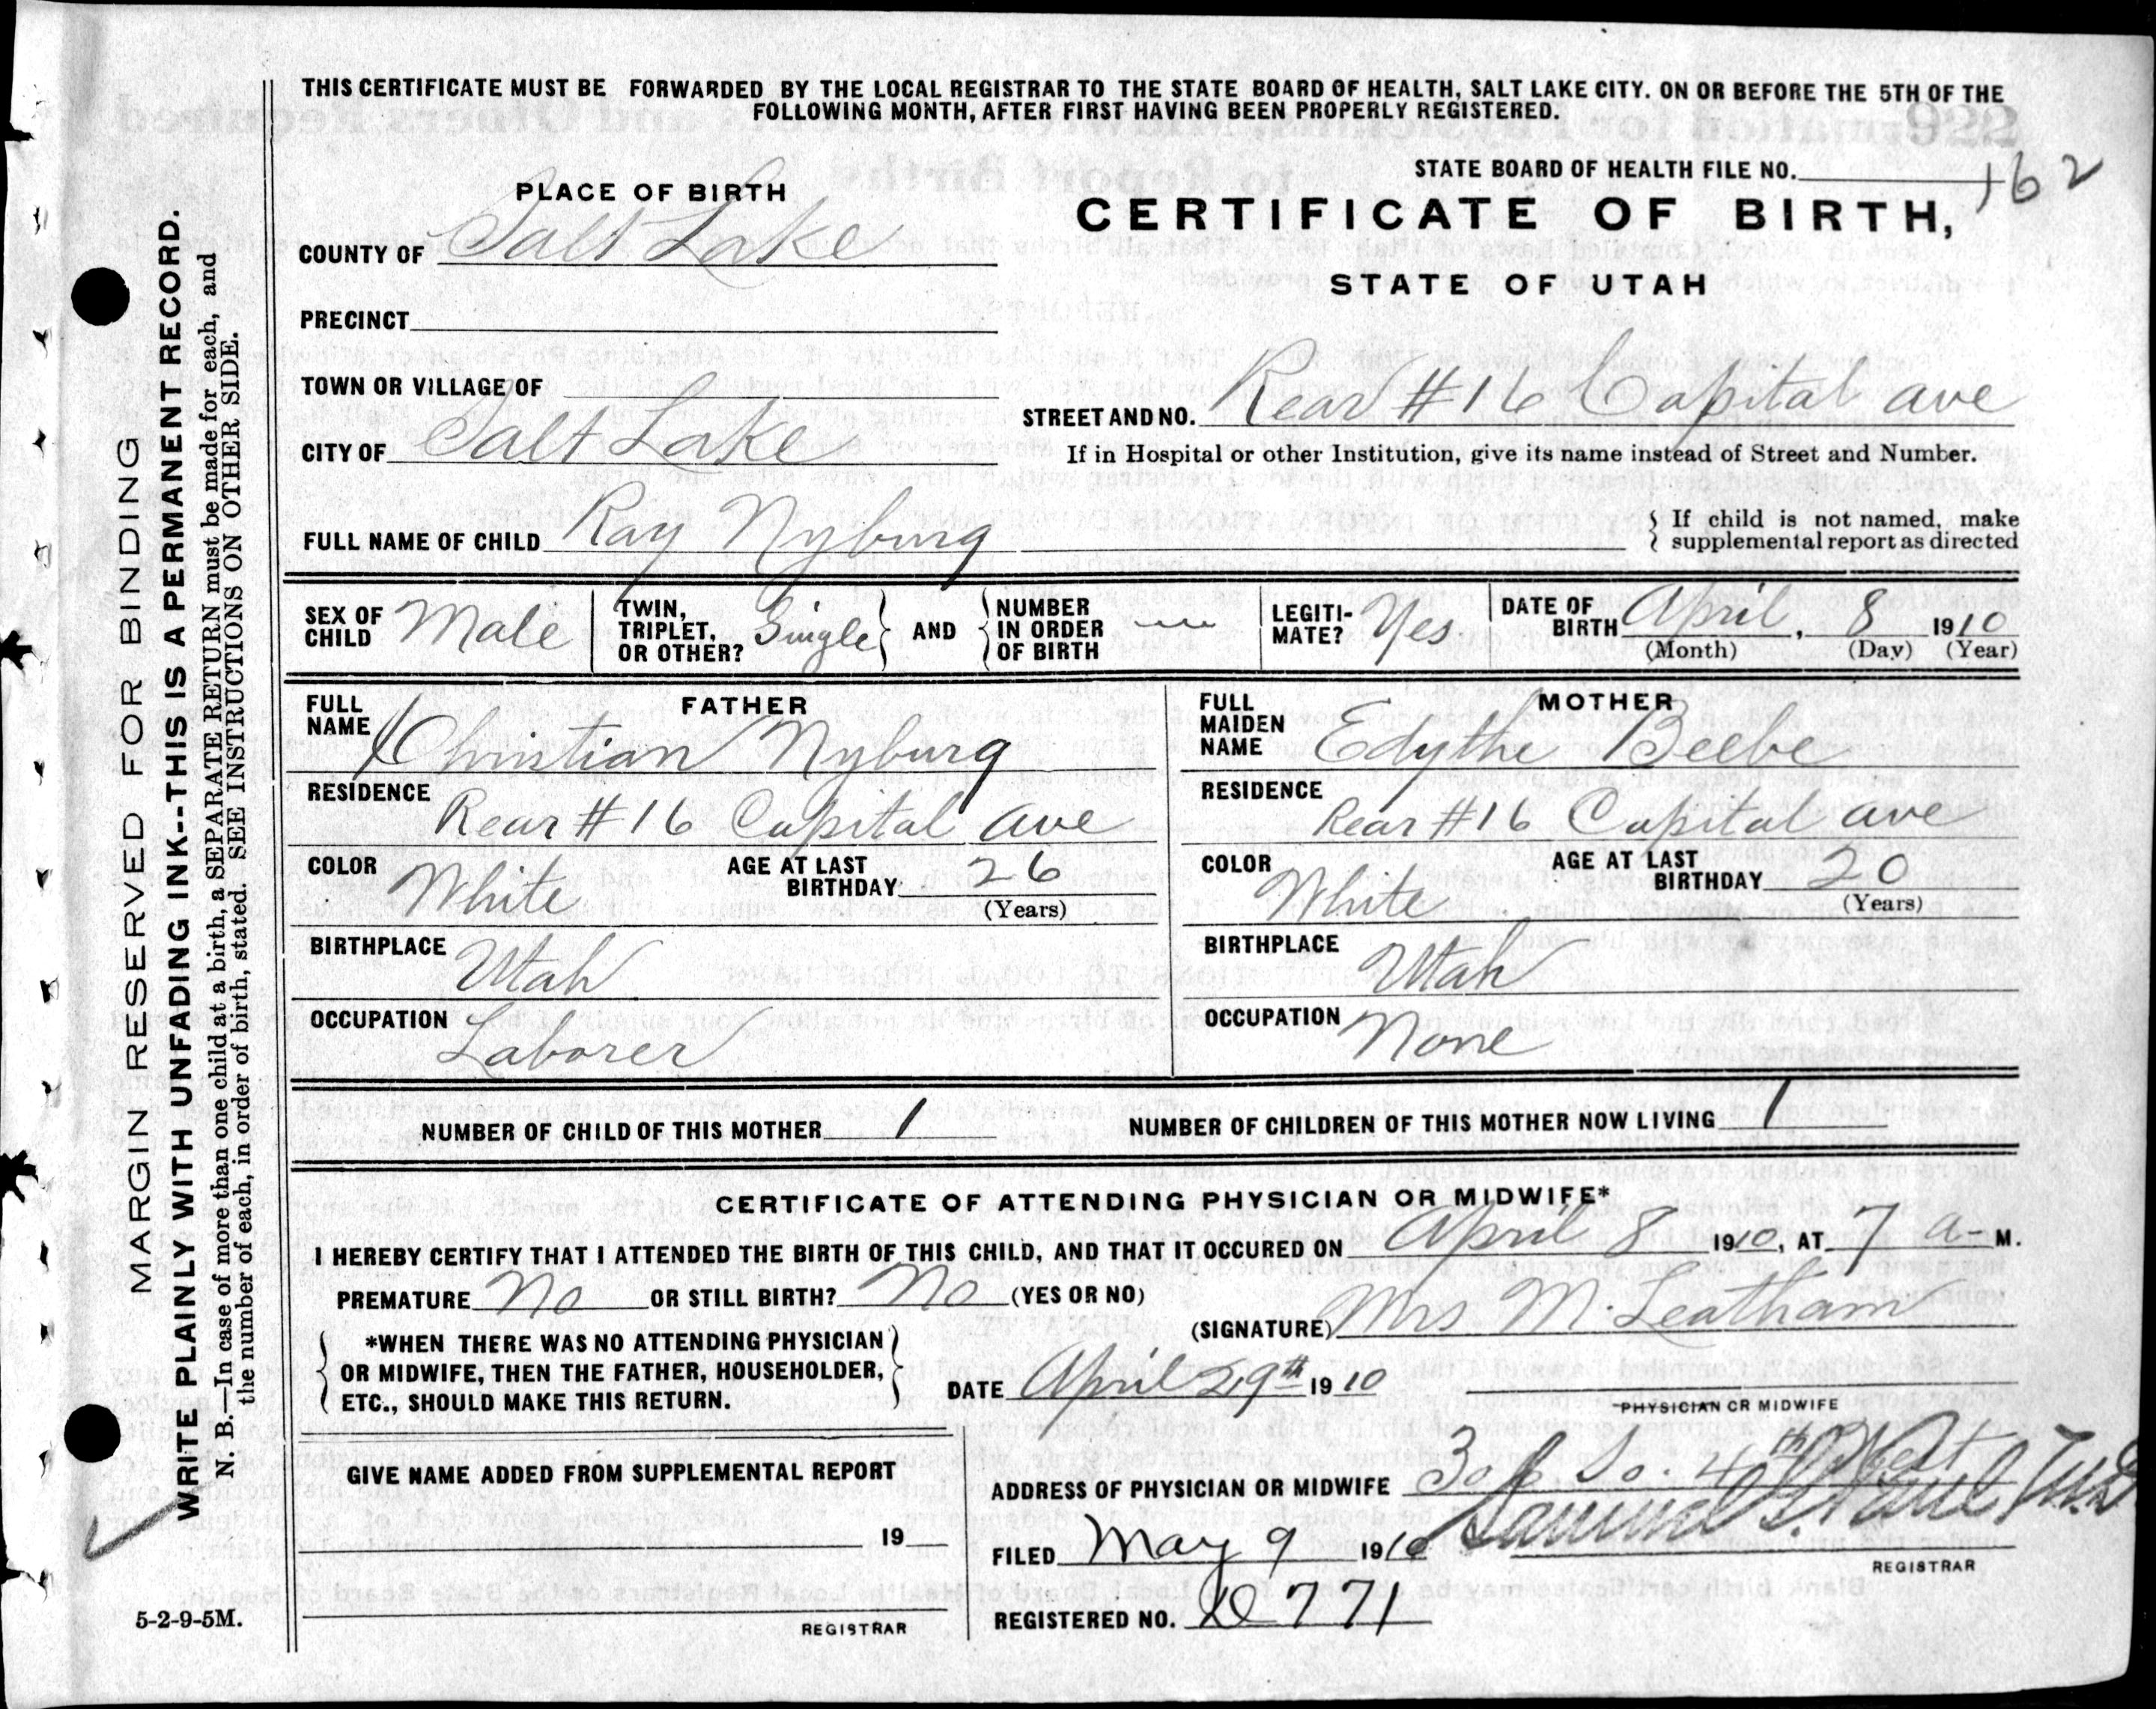 THIS CERTIFICATE MUST BE FORWARDED BY THE LOCAL REGISTRAR TO THE STATE BOARD OF HEALTH, SALT LAKE CITY. ON OR BEFORE THE 5TH OF THE
FOLLOWING MONTH, AFTER FIRST HAVING BEEN PROPERLY REGISTERED.
STATE BOARD OF HEALTH FILE NO. 162
PLACE OF BIRTH
CERTIFICATE OF BIRTH,
COUNTY OF Salt Lake
STATE OF UTAH
PRECINCT
TOWN OR VILLAGE OF
STREET AND NO. Rear #16 Capital ave
CITY OF Salt Lake
If in Hospital or other Institution, give its name instead of Street and Number.
FULL NAME OF CHILD Ray Nyburg
{ If child is not named, make
supplemental report as directed
SEX OF CHILD Male
TWIN, TRIPLET, OR OTHER? Single } AND { NUMBER IN ORDER OF BIRTH —
LEGITI-MATE? Yes.
DATE OF BIRTH April, 8 1910
(Month) (Day) (Year)
FATHER
FULL NAME Christian Nyburg
RESIDENCE
Rear #16 Capital ave
COLOR White AGE AT LAST BIRTHDAY 26
(Years)
BIRTHPLACE
Utah
OCCUPATION
Laborer
MOTHER
FULL MAIDEN NAME Edythe Beebe
RESIDENCE
Rear #16 Capital ave
COLOR White AGE AT LAST BIRTHDAY 20
(Years)
BIRTHPLACE
Utah
OCCUPATION
None
NUMBER OF CHILD OF THIS MOTHER 1 NUMBER OF CHILDREN OF THIS MOTHER NOW LIVING 1
CERTIFICATE OF ATTENDING PHYSICIAN OR MIDWIFE*
I HEREBY CERTIFY THAT I ATTENDED THE BIRTH OF THIS CHILD, AND THAT IT OCCURED ON April 8 1910, AT 7 a- M.
PREMATURE No OR STILL BIRTH? No (YES OR NO)
(SIGNATURE) Mrs M. Leatham
{ *WHEN THERE WAS NO ATTENDING PHYSICIAN
OR MIDWIFE, THEN THE FATHER, HOUSEHOLDER,
ETC., SHOULD MAKE THIS RETURN. }
DATE April 29th 1910
PHYSICIAN OR MIDWIFE
GIVE NAME ADDED FROM SUPPLEMENTAL REPORT
19
REGISTRAR
ADDRESS OF PHYSICIAN OR MIDWIFE So. 4th West
FILED May 9 1910 M.D.
REGISTRAR
REGISTERED NO. 771
MARGIN RESERVED FOR BINDING
WRITE PLAINLY WITH UNFADING INK--THIS IS A PERMANENT RECORD.
N. B.—In case of more than one child at a birth, a SEPARATE RETURN must be made for each, and
the number of each, in order of birth, stated. SEE INSTRUCTIONS ON OTHER SIDE.
5-2-9-5M.